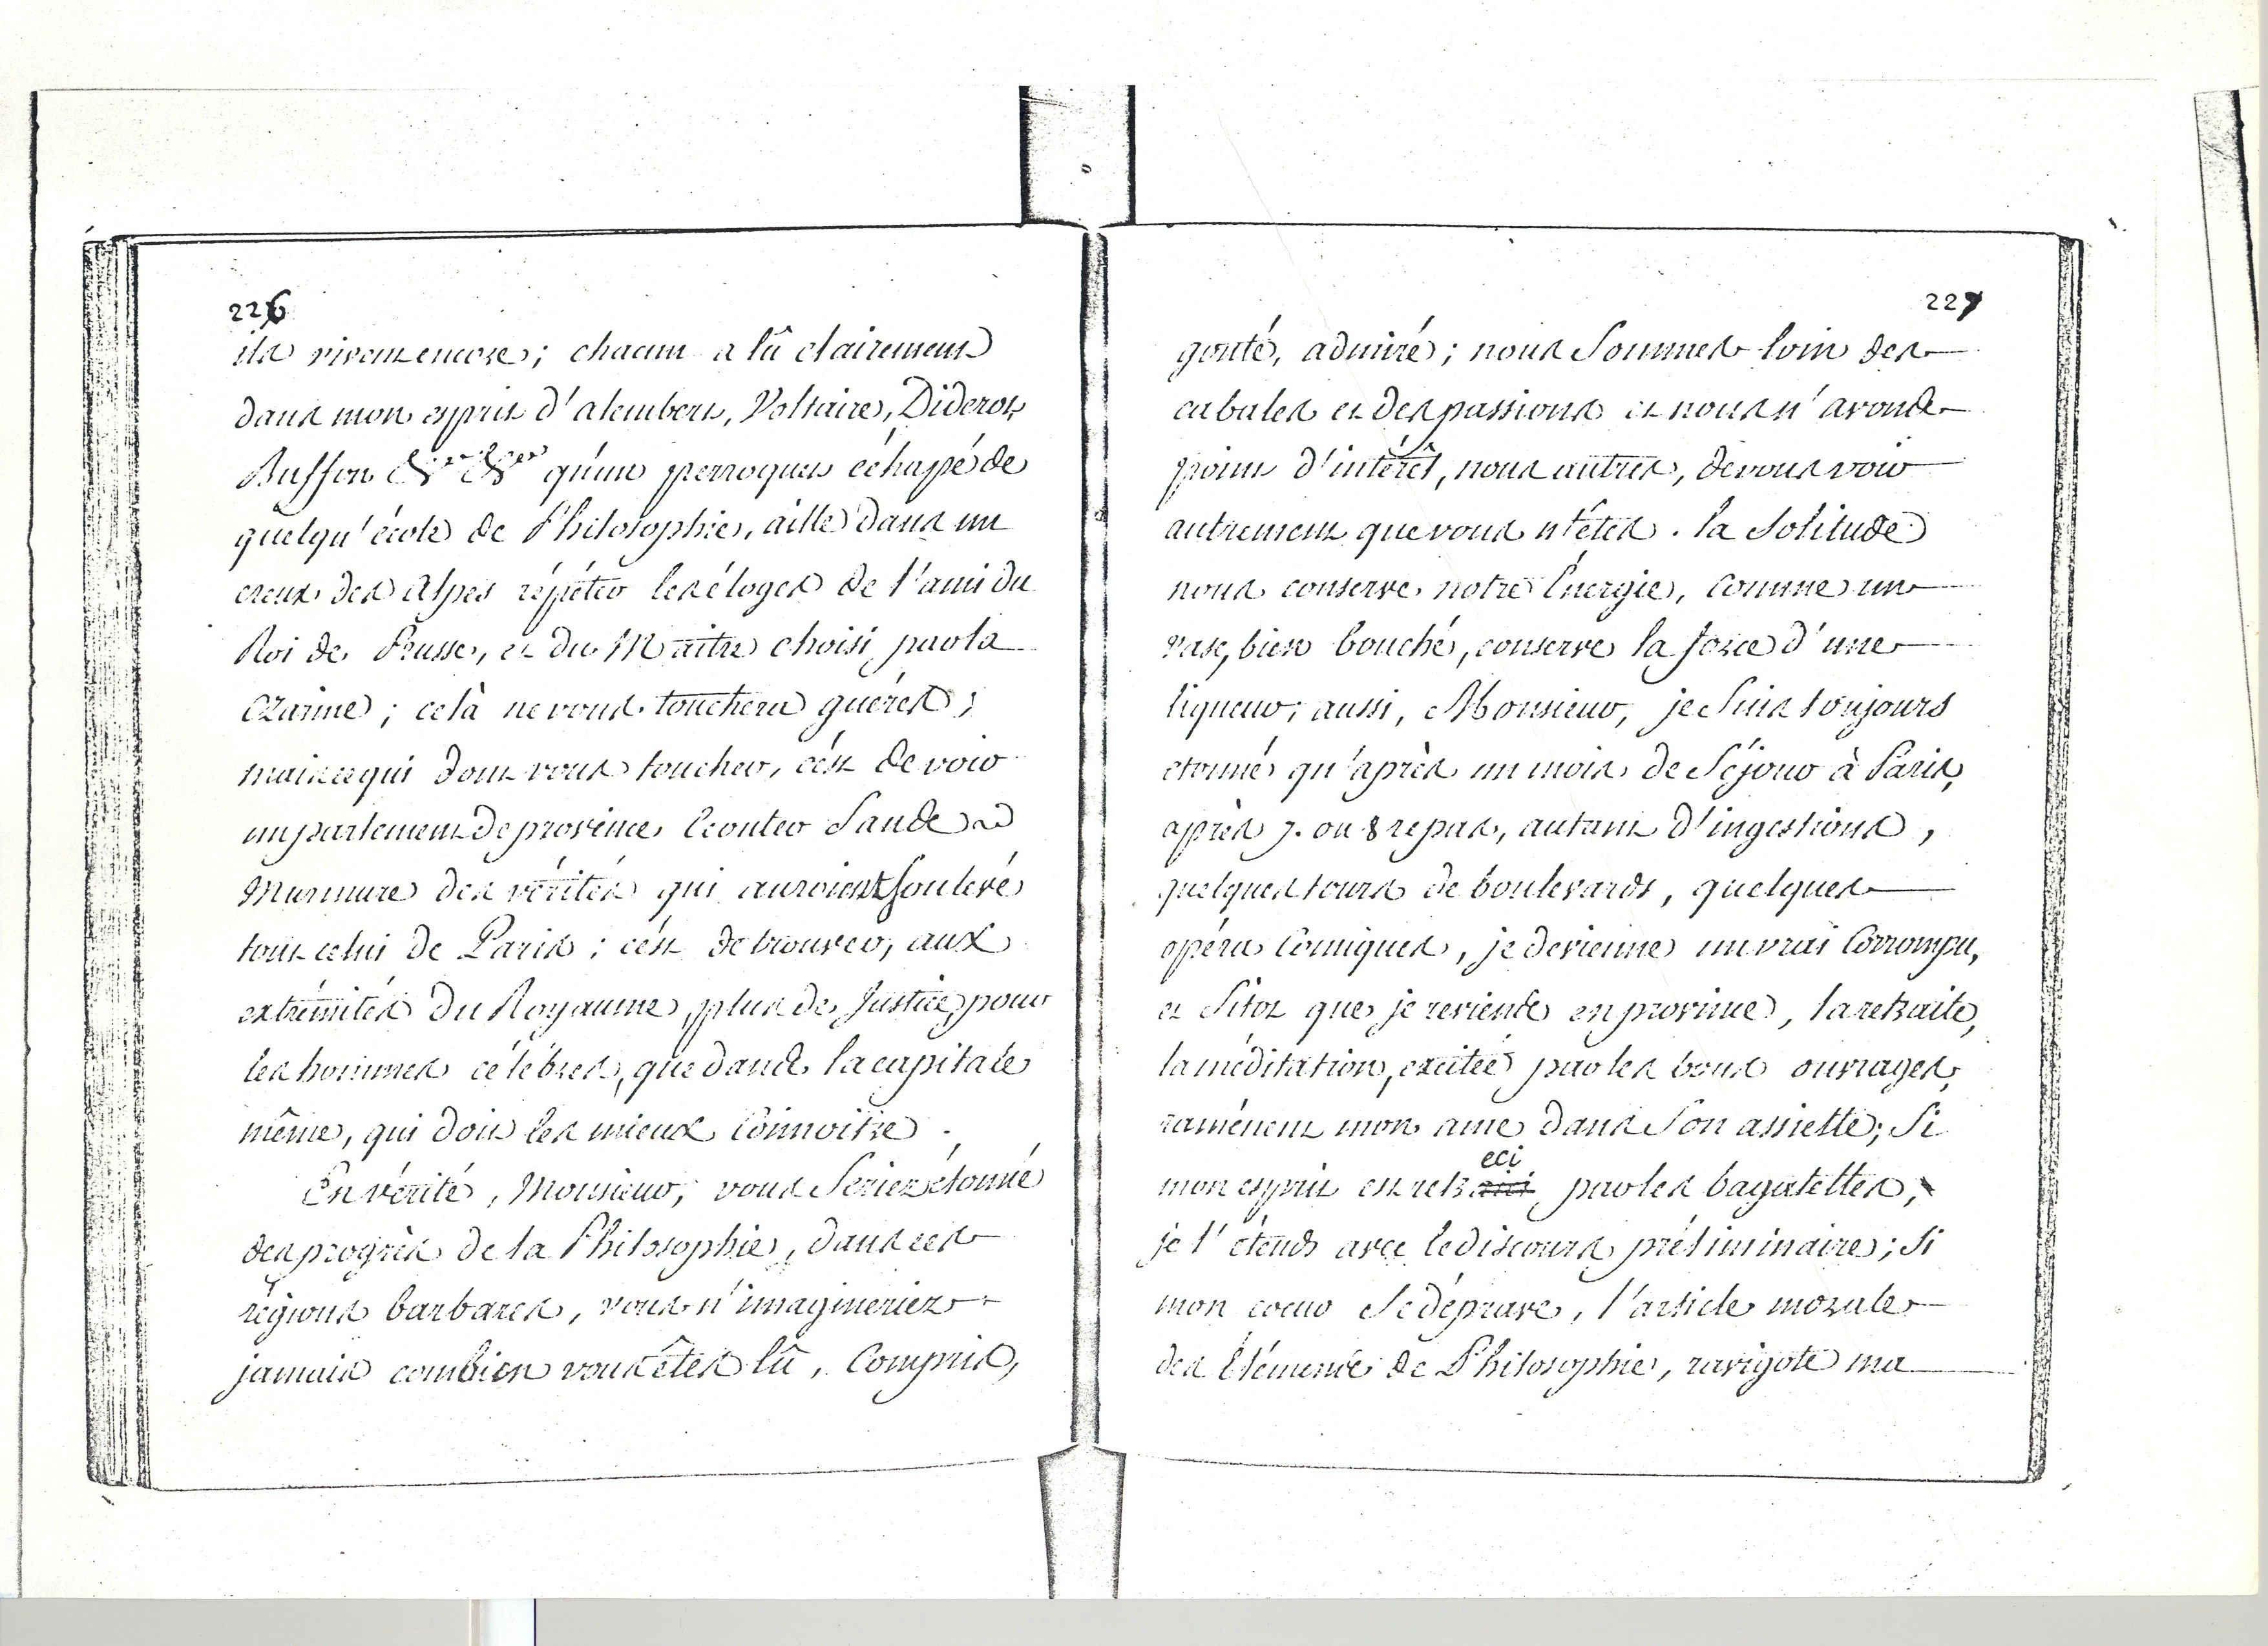 226
ils vivent encore; chacun a lû clairement
dans mon esprit d'alembert, Voltaire, Diderot,
Buffon &ca &ca qu'un perroquet échapé de
quelqu'école de Philosophie, aille dans un
creux des Alpes répéter les éloges de l'ami du
Roi de Prusse, et du Maitre choisi par la
Czarine; celà ne vous touchera guéres;
mais ce qui doit vous toucher, c'ést de voir
un parlement de province Ecouter Sans
Murmure des vérités qui auroient Soulevé
tout celui de Paris; c'ést de trouver, aux
extrémités du Royaume, plus de Justice, pour
les hommes célébres, que dans la capitale
même, qui doit les mieux Connoitre.
En vérité, Monsieur, vous Seriez étonné
des progrès de la Philosophie, dans ces
régions barbares, vous n'imagineriez
jamais combien vous êtes lû, Compris,
227
gouté, admiré; nous Sommes loin des
cabales et des passions et nous n'avons
point d'intérêt, nous autres, de vous voir
autrement que vous n'étes. la Solitude
nous conserve notre Energie, Comme un
vase, bien bouché, conserve la force d'une
liqueur; aussi, Monsieur, je Suis toujours
etonné qu'après un mois de Séjour à Paris,
après 7. ou 8 repas, autant d'ingestions,
quelques tours de boulevards, quelques
opéra Comiques, je devienne un vrai Corrompu,
et Sitot que je reviens en province, la retraite,
la méditation, excitée par les bons ouvrages,
raménent mon ame dans Son assiette; Si
mon esprit est retreci par les bagatelles,
je l'étends avec le discours préliminaire; Si
mon coeur Se déprave, l'article morale
des Elémens de Philosophie, ravigote ma